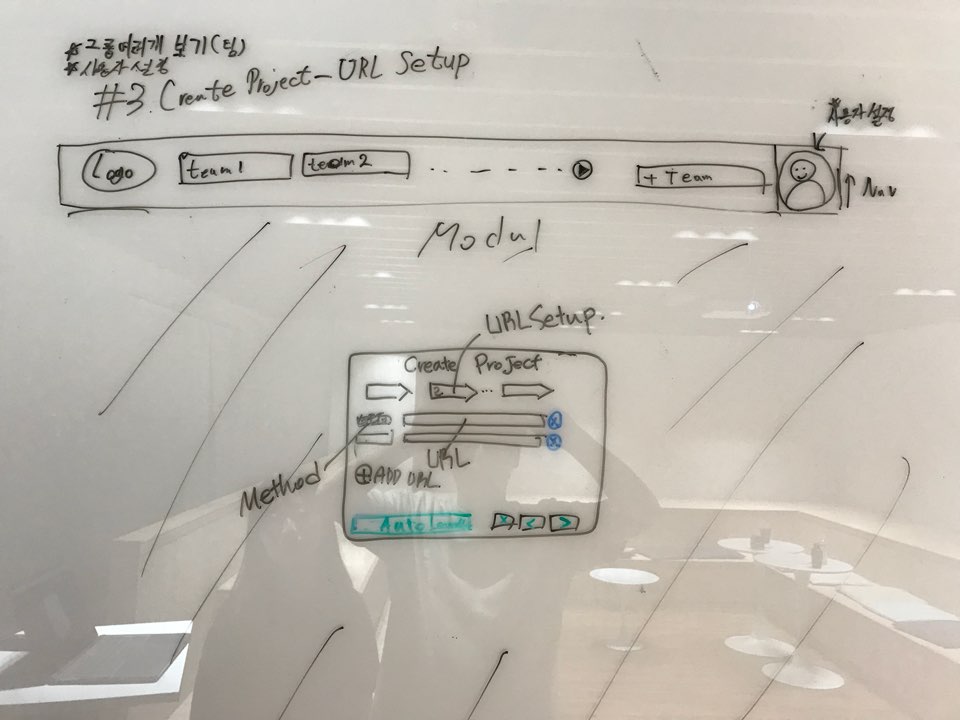 * 그룹여러개 보기(팀)
* 사용자 설정
#3. Create Project - URL Setup
사용자 설정
Logo
team1
team2
+ Team
Nav
Modul
URL Setup.
Create Project
2
URL
Method
⊕ ADD URL
Auto
X < >